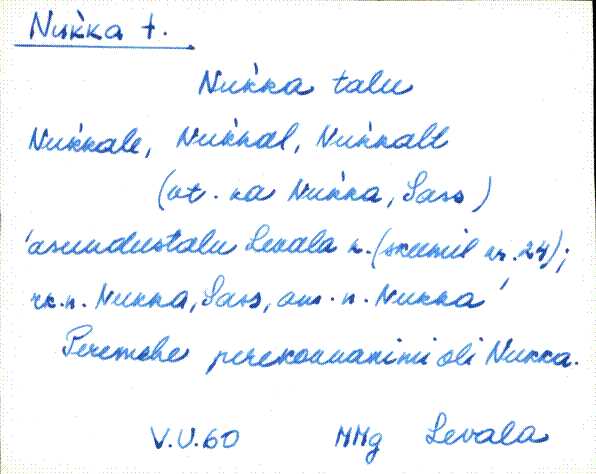 Nuk̀ka t.
Nuk̀ka talu
Nuk̀kale, Nuk̀kal, Nuk̀kalt
(vt. ka Nuk̀ka, Sass)
'asundustalu Levala k. (skeemil nr. 24);
rk. n. Nukka, Sass, am. n. Nukka
Peremehe perekonnanimi oli Nukka.
V.U.60 MMg Levala